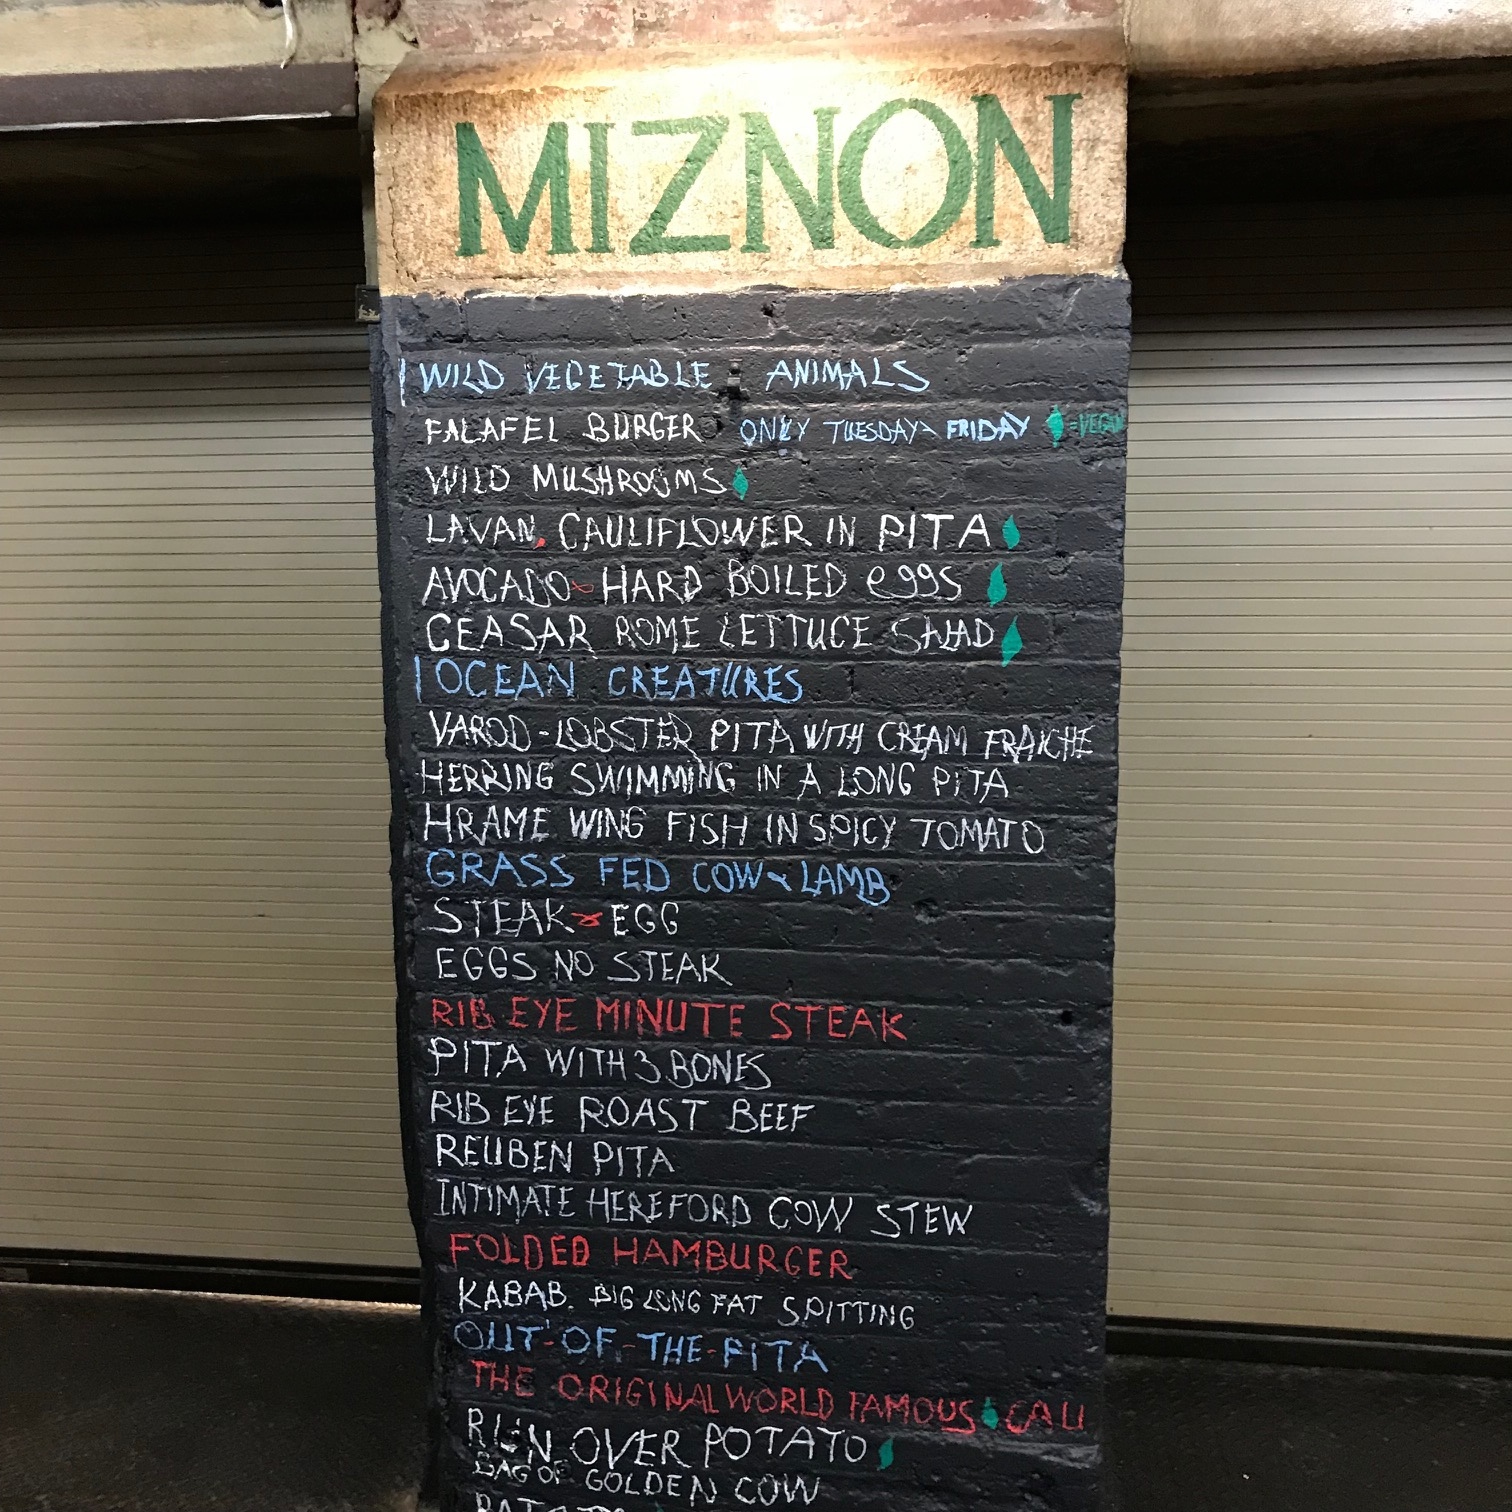 MIZNON
WILD VEGETABLE & ANIMALS
FALAFEL BURGER ONLY TUESDAY - FRIDAY =VEGAN
WILD MUSHROOMS
LAVAN. CAULIFLOWER IN PITA
AVOCADO & HARD BOILED eggs
CEASAR ROME LETTUCE SALAD
OCEAN CREATURES
VAROD-LOBSTER PITA WITH CREAM FRAICHE
HERRING SWIMMING IN A LONG PITA
HRAME WING FISH IN SPICY TOMATO
GRASS FED COW & LAMB
STEAK & EGG
EGGS NO STEAK
RIB EYE MINUTE STEAK
PITA WITH 3 BONES
RIB EYE ROAST BEEF
REUBEN PITA
INTIMATE HEREFORD COW STEW
FOLDED HAMBURGER
KABAB. BIG LONG FAT SPITTING
OUT-OF-THE-PITA
THE ORIGINAL WORLD FAMOUS CAU
RUN OVER POTATO
BAG OF GOLDEN COW